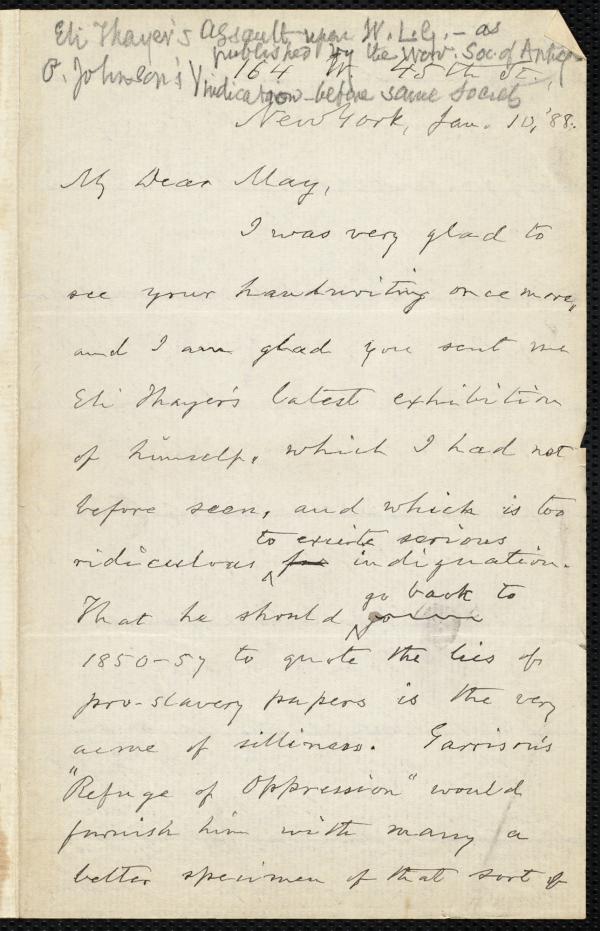 Eli Thayer's Assault upon W. L. G. – as
published by the Wor. Soc. of Antiq.
O. Johnson's Vindication – before same Society
164 W. 45th St.,
New York, Jan. 10, '88.
My Dear May,
I was very glad to
see your handwriting once more,
and I am glad you sent me
Eli Thayer's latest exhibition
of himself, which I had not
before seen, and which is too
ridiculous to excite serious indignation.
That he should go back to
1850-57 to quote the lies of
pro-slavery papers is the very
acme of silliness. Garrison's
"Refuge of Oppression" would
furnish him with many a
better specimen of that sort of